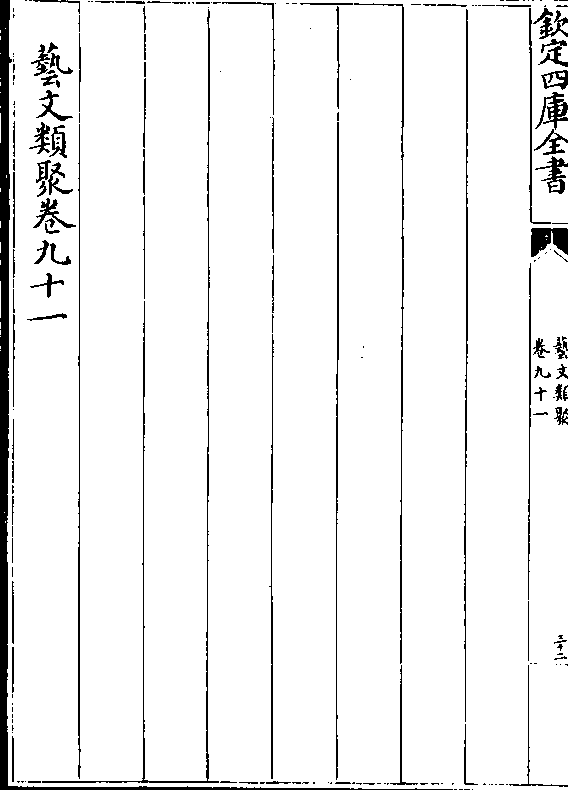 欽定四庫全書
藝文類聚
卷九十一
三十二
藝文類聚卷九十一